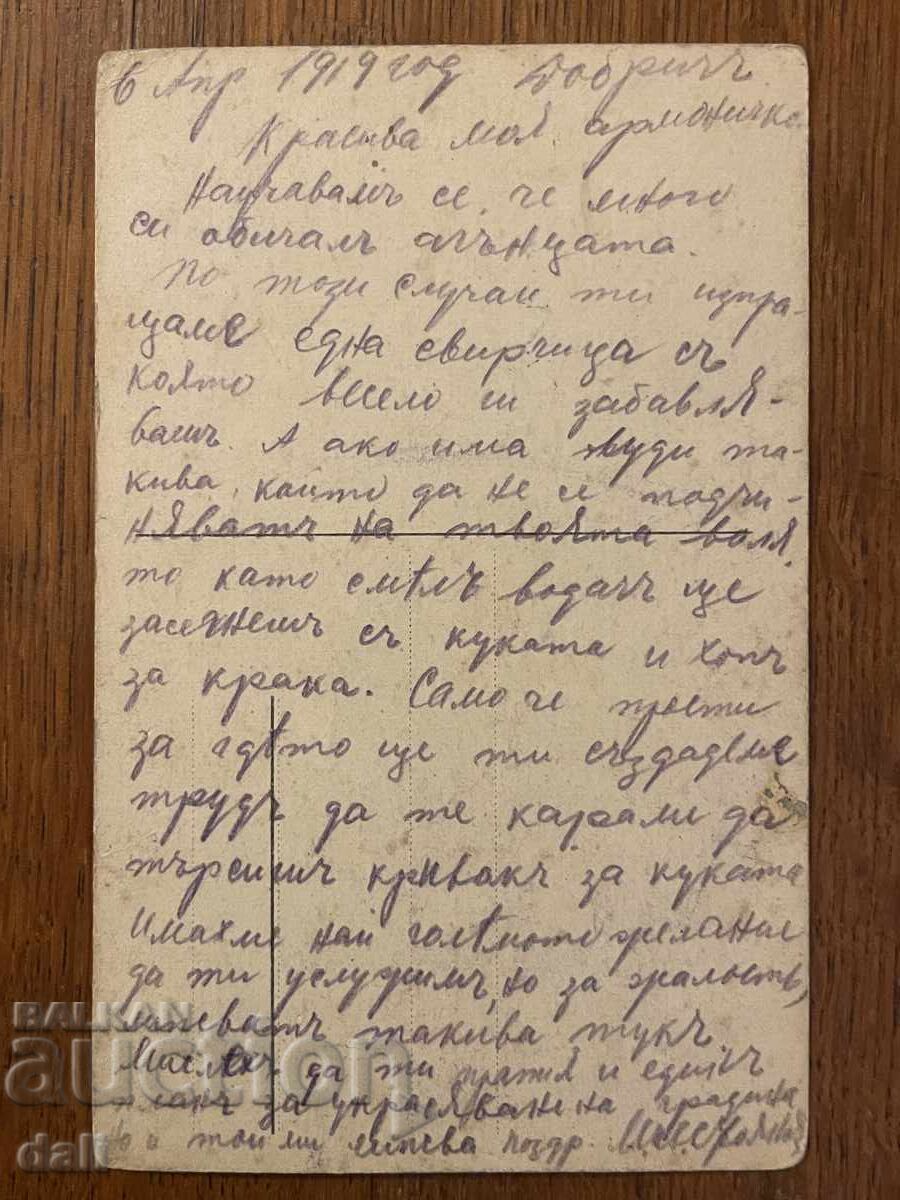 6 Апр 1919 год Добричъ
Красива моя
Научавамъ се, че много
си обичалъ агънцата.
По този случай ти изпра-
щаме една свирчица съ
която весело ги забавля-
вашъ. А ако има луди та-
кива, които да не се подчи-
няватъ на твоята воля,
то като смѣлъ водачъ ще
засегнешъ съ куката и хопъ
за крака. Само че прости
за гдѣто ще ти създадеме
трудъ да те карами да
търсишъ кривакъ за куката
Имахме най голѣмото желание
да ти услужимъ, но за жалость,
липсватъ такива тукъ.
да ти пратя и единъ
за украсяване на градина
но и той ми липсва поздр.
BALKAN
auction
dali